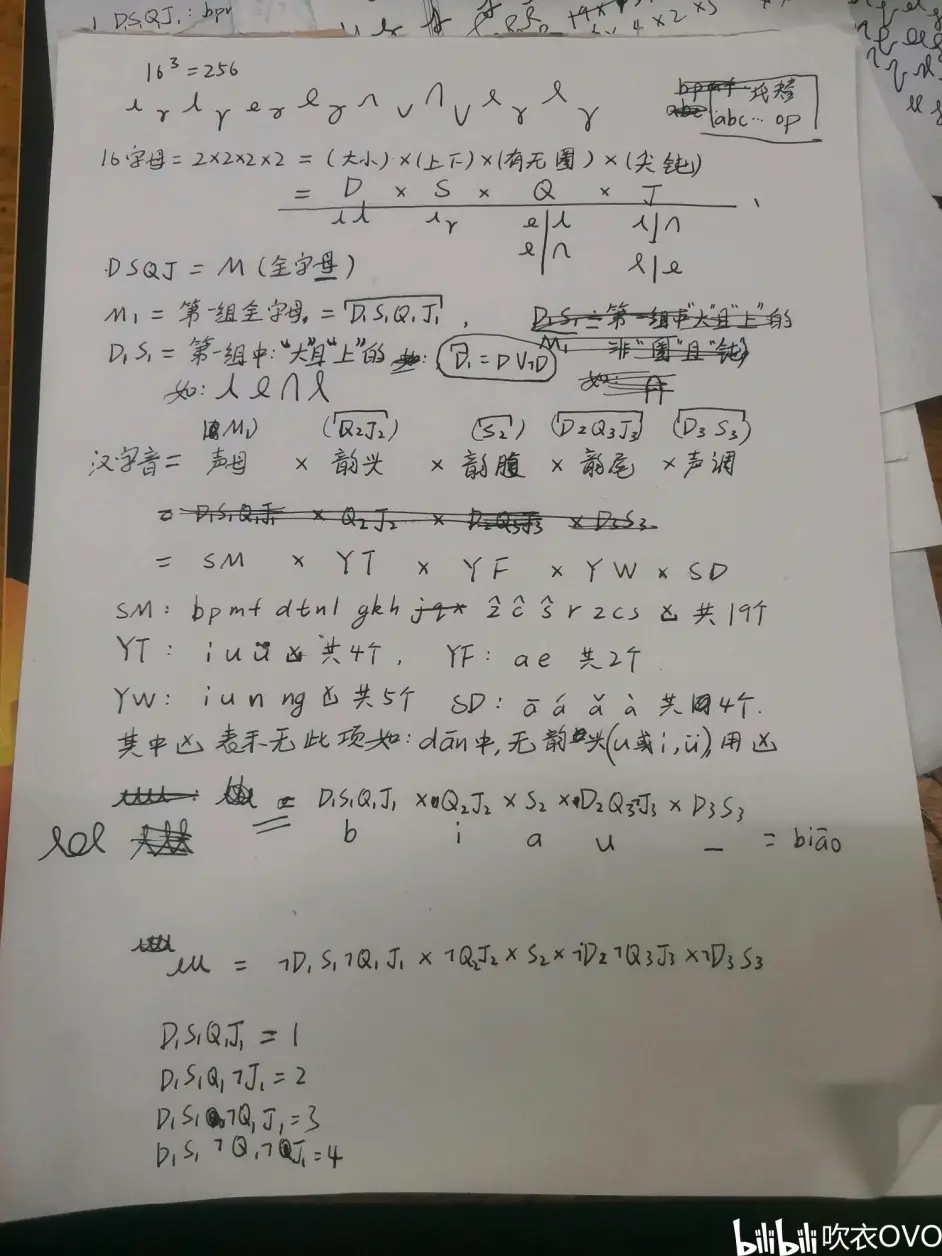 1 DSQJ₁: bpm
16³=256
bpmf 代替
abc abc…op
16字母=2×2×2×2=(大小)×(上下)×(有无圈)×(尖钝)
= D × S × Q × J
DSQJ = M (全字母)
M₁ = 第一组全字母。= D₁S₁Q₁J₁,
D₁S₁ = 第一组中"大"且"上"的
D₁S₁ = 第一组中:"大"且"上"的 如: D₁=D∨¬D
M₁ 非"圈"且"钝"
如: 如:
(M₁) (Q₂J₂) (S₂) (D₂Q₃J₃) (D₃S₃)
汉字音= 声母 × 韵头 × 韵腹 × 韵尾 ×声调
= D₁S₁Q₁J₁ × Q₂J₂ × D₂Q₃J₃ × D₃S₃
= SM × YT × YF × YW × SD
SM: bpmf dtnl gkh jqx ẑ ĉ ŝ r zcs 共19个
YT: i u ü 共4个, YF: a e 共2个
YW: i u n ng 共5个 SD: ā á ǎ à 共4个.
其中 表示无此项如:dān中,无韵头(u或i,ü),用
= D₁S₁Q₁J₁ × Q₂J₂ × S₂ × D₂Q₃J₃ × D₃S₃
b i a u — = biāo
= ¬D₁S₁¬Q₁J₁ × ¬Q₂J₂ × S₂ × ¬D₂¬Q₃J₃ × ¬D₃S₃
D₁S₁Q₁J₁ = 1
D₁S₁Q₁¬J₁ = 2
D₁S₁¬Q₁J₁ = 3
D₁S₁¬Q₁¬J₁ = 4
bilibili 吹衣OVO